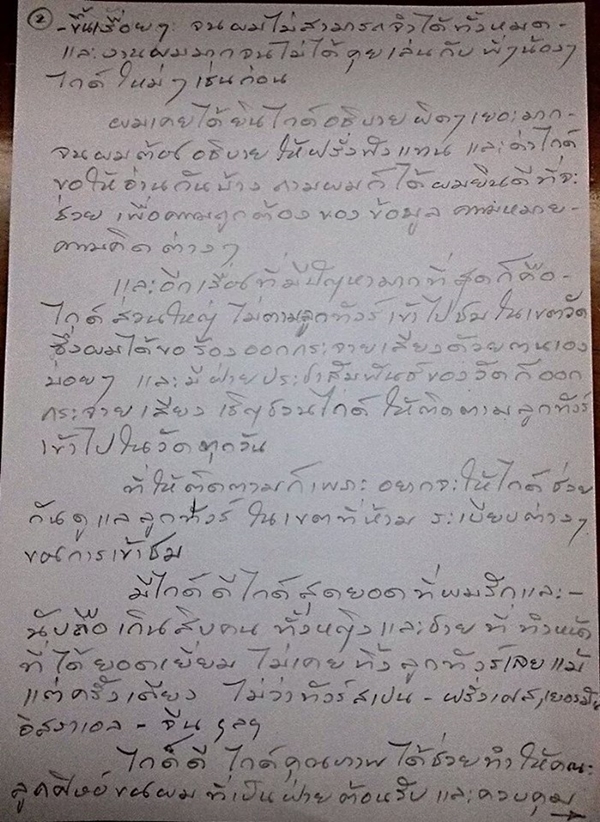 ②
-ขึ้นเรื่อยๆ จนผมไม่สามารถจำได้ทั้งหมด-
และงานผมมากจนไม่ได้คุยเล่นกับ พี่ๆน้องๆ
ไกด์ ใหม่ๆ เช่นก่อน
ผมเคยได้ยินไกด์อธิบายผิดๆเยอะมาก-
จนผมต้องอธิบายให้ฝรั่งฟังแทน และด่าไกด์
ขอให้อ่านกันบ้าง ถามผมก็ได้ผมยินดีที่จะ
ช่วย เพื่อความถูกต้องของข้อมูล ความหมาย-
ความคิดต่างๆ
และอีกเรื่องที่มีปัญหามากที่สุดก็คือ-
ไกด์ส่วนใหญ่ ไม่ตามลูกทัวร์เข้าไปชมในเขตวัด
ซึ่งผมได้ขอร้องออกกระจายเสียงด้วยตนเอง
บ่อยๆ และมีฝ่ายประชาสัมพันธ์ของวัดก็ออก
กระจายเสียง เชิญชวนไกด์ ให้ติดตามลูกทัวร์
เข้าไปในวัดทุกวัน
ที่ให้ติดตามก็เพราะ อยากจะให้ไกด์ช่วย
กันดูแลลูกทัวร์ ในเขตที่ห้าม ระเบียบต่างๆ
ของการเข้าชม
มีไกด์ดีไกด์สุดยอดที่ผมรักและ-
นับถือเกินสิบคน ทั้งหญิงและชาย ที่ทำหน้าที่
ที่ได้ยอดเยี่ยม ไม่เคยทิ้งลูกทัวร์เลยแม้
แต่ครั้งเดียว ไม่ว่าทัวร์สเปน-ฝรั่งเศส,เยอรมัน
อิสราเอล-จีน ฯลฯ
ไกด์ดี ไกด์คุณภาพ ได้ช่วยทำให้คณะ
ลูกศิษย์ของผมที่เป็นฝ่ายต้อนรับ และควบคุม
→